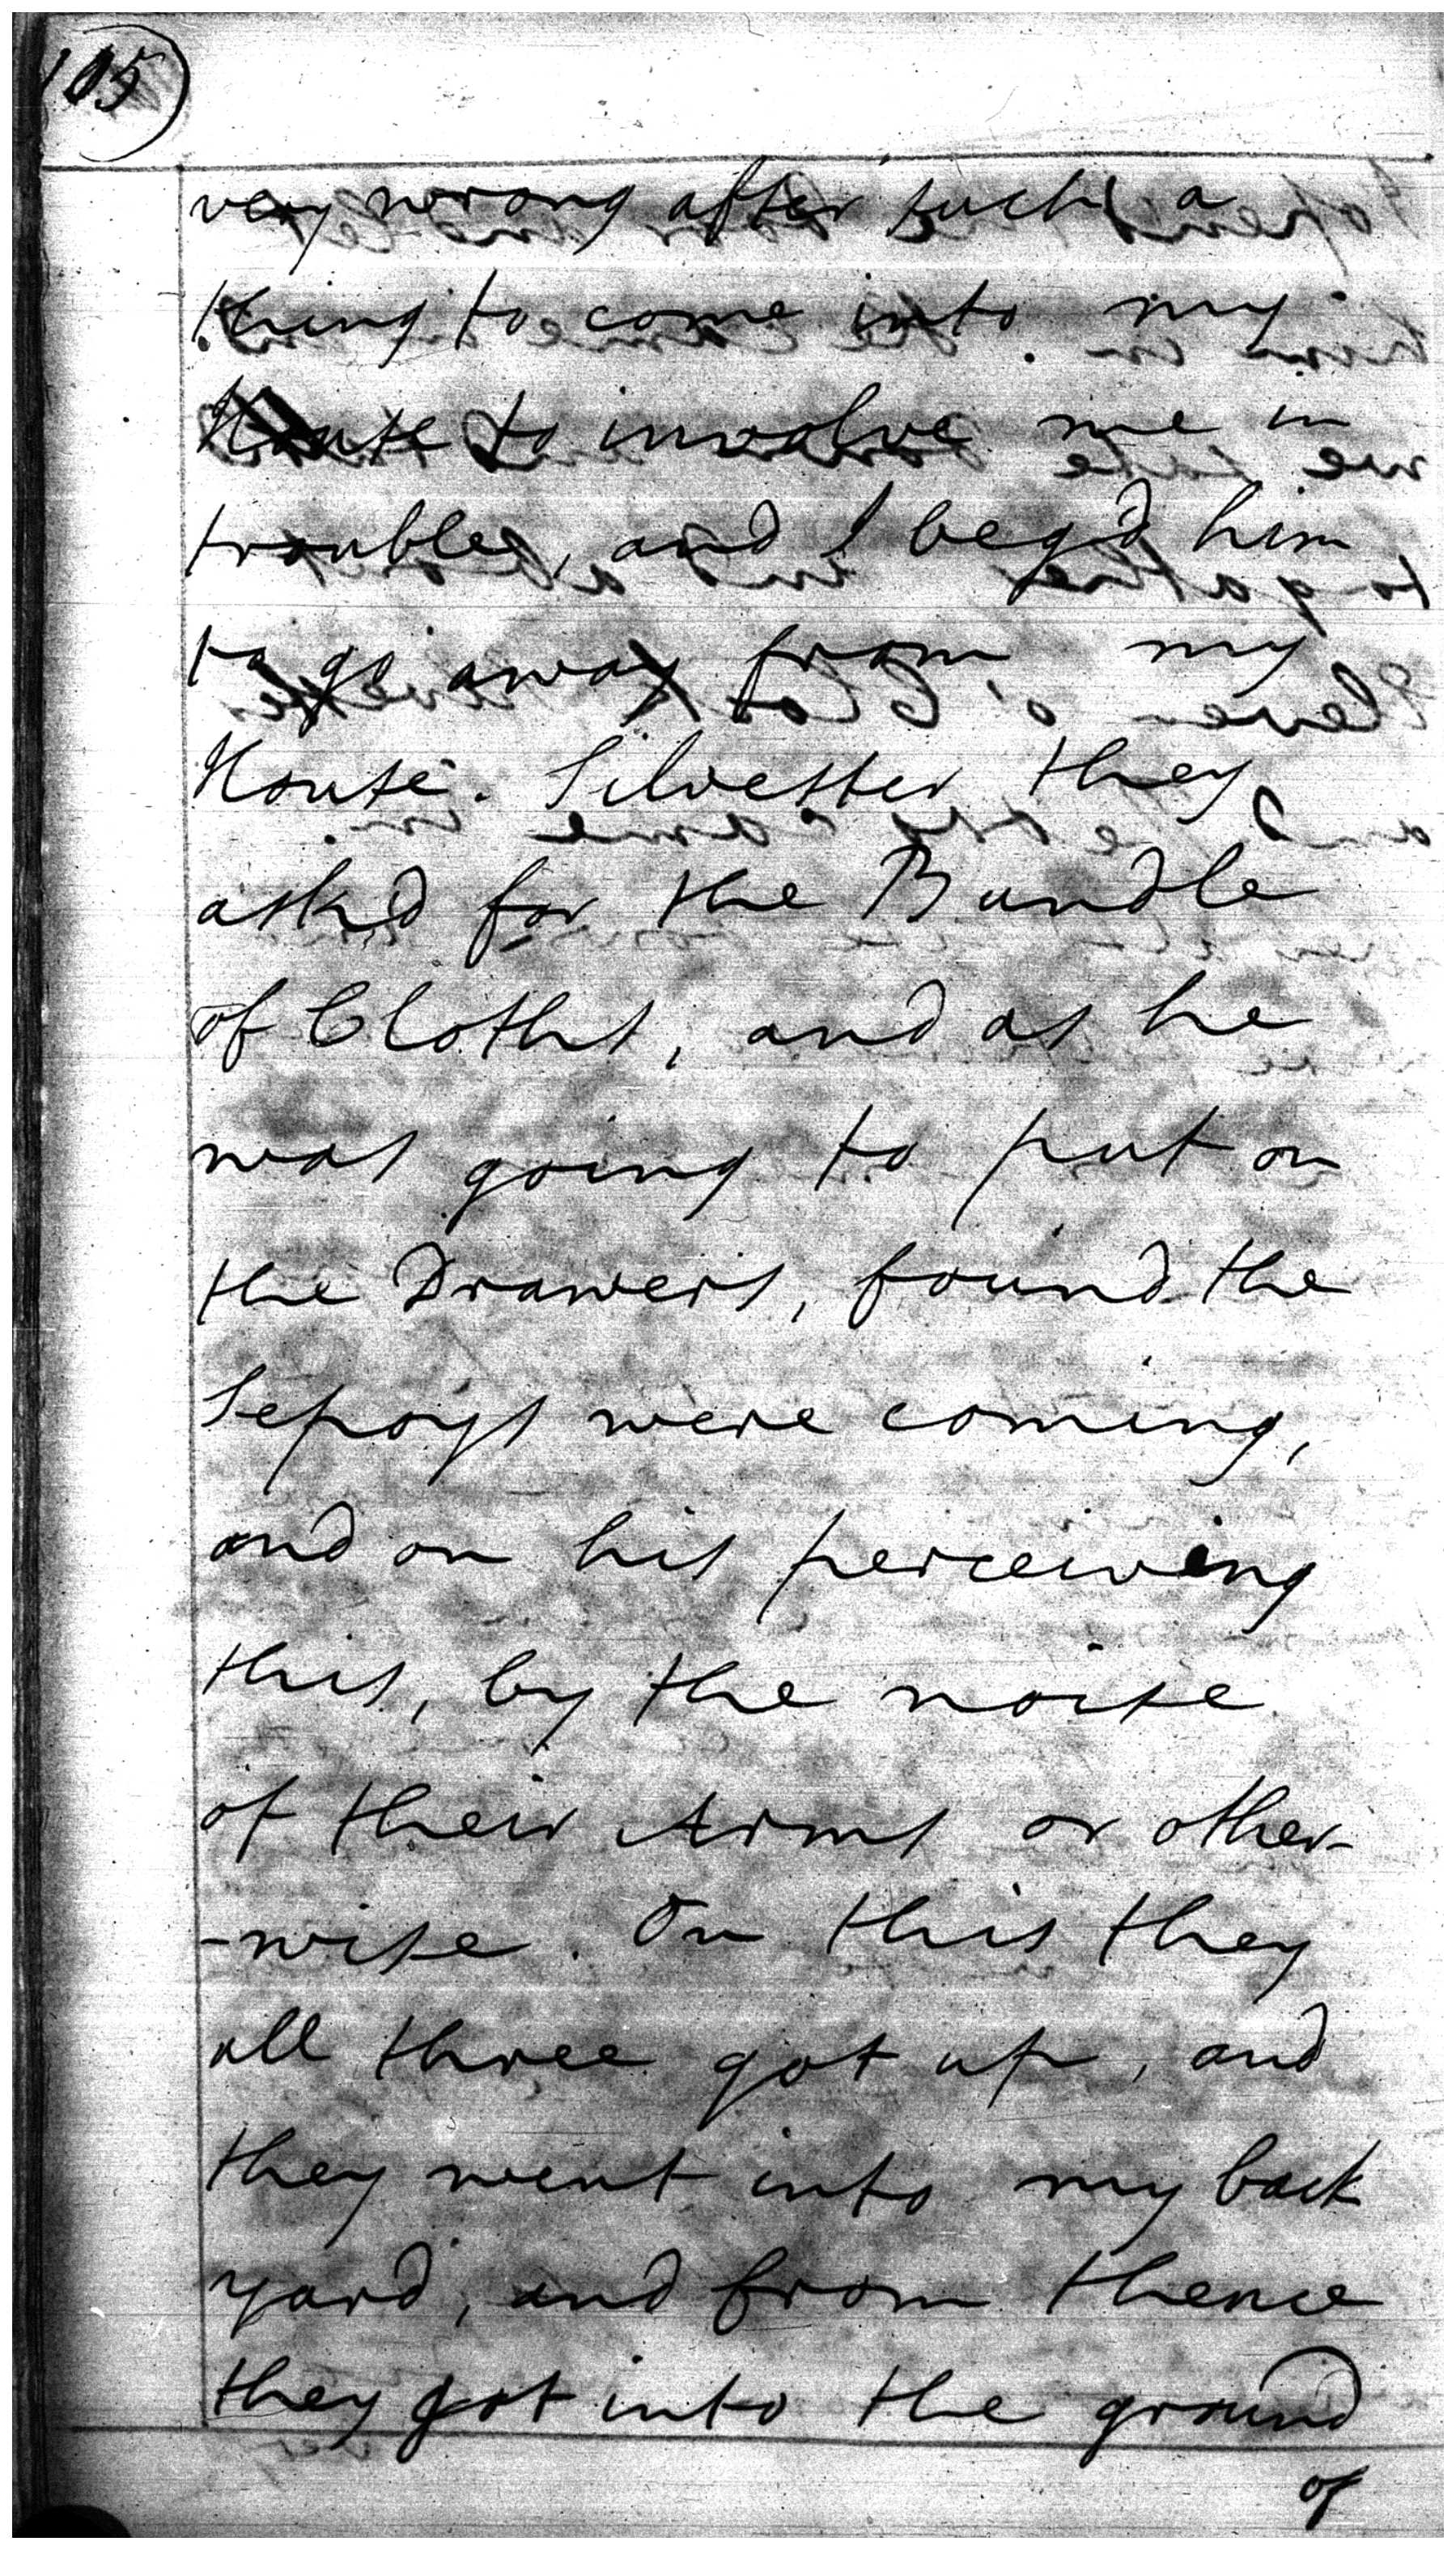 105
very wrong after such a
thing to come into my
House to involve me in
trouble, and I beg'd him
to go away from my
House. Silvester they
ask'd for the Bundle
of Cloths, and as he
was going to put on
the Drawers, found the
Sepoys were coming,
and on his perceiving
this, by the noise
of their Arms or other-
-wise. On this they
all three got up, and
they went into my back
yard, and from thence
they got into the ground
of